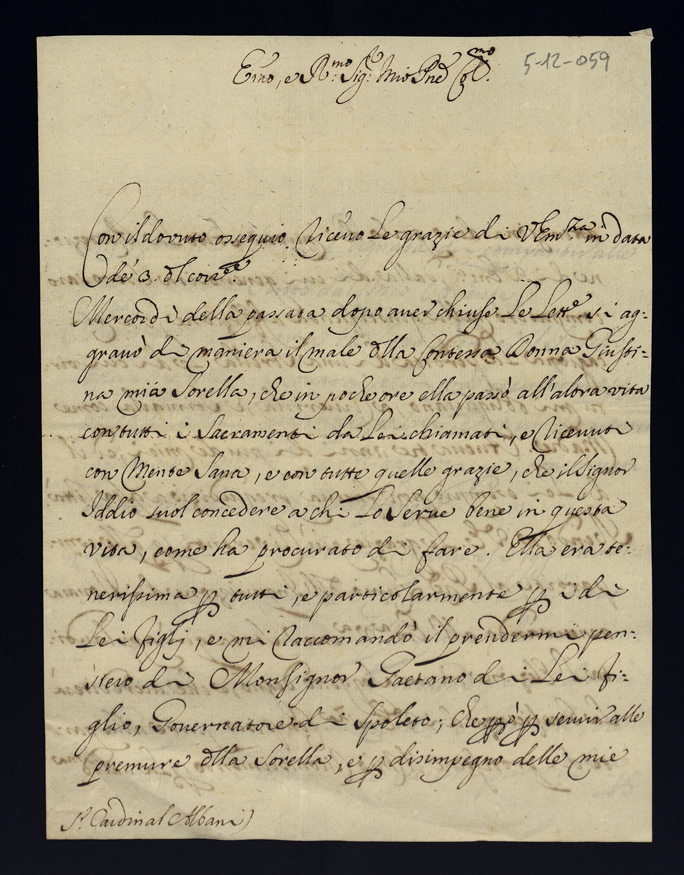 Emo, e Rmo Sigr. Mio Pne Colmo.
5-12-059
Con il dovuto ossequio ricevo Le grazie di VEmza in data
de' 3. del corrte.
Mercordì della passata dopo aver chiuse Le Lette si ag-
gravò di maniera il male dlla Contessa Donna Giusti-
na mia Sorella, che in poche ore ella passò all'altra vita
con tutti i Sacramenti da Lei chiamati, e ricevuti
con Mente Sana, e con tutte quelle grazie, che il Signor
Iddio suol concedere a chi Lo Serve bene in questa
vita, come ha procurato di fare. Ella era te-
nerissima p tutti, e particolarmente p i di
Lei figlj, e mi raccomandò il prendermi pen-
siero di Monsignor Gaetano di Lei fi-
glio, Governatore di Spoleto; che però p servir alle
premure dlla Sorella, e p disimpegno delle mie
Sr. Cardinal Albani)